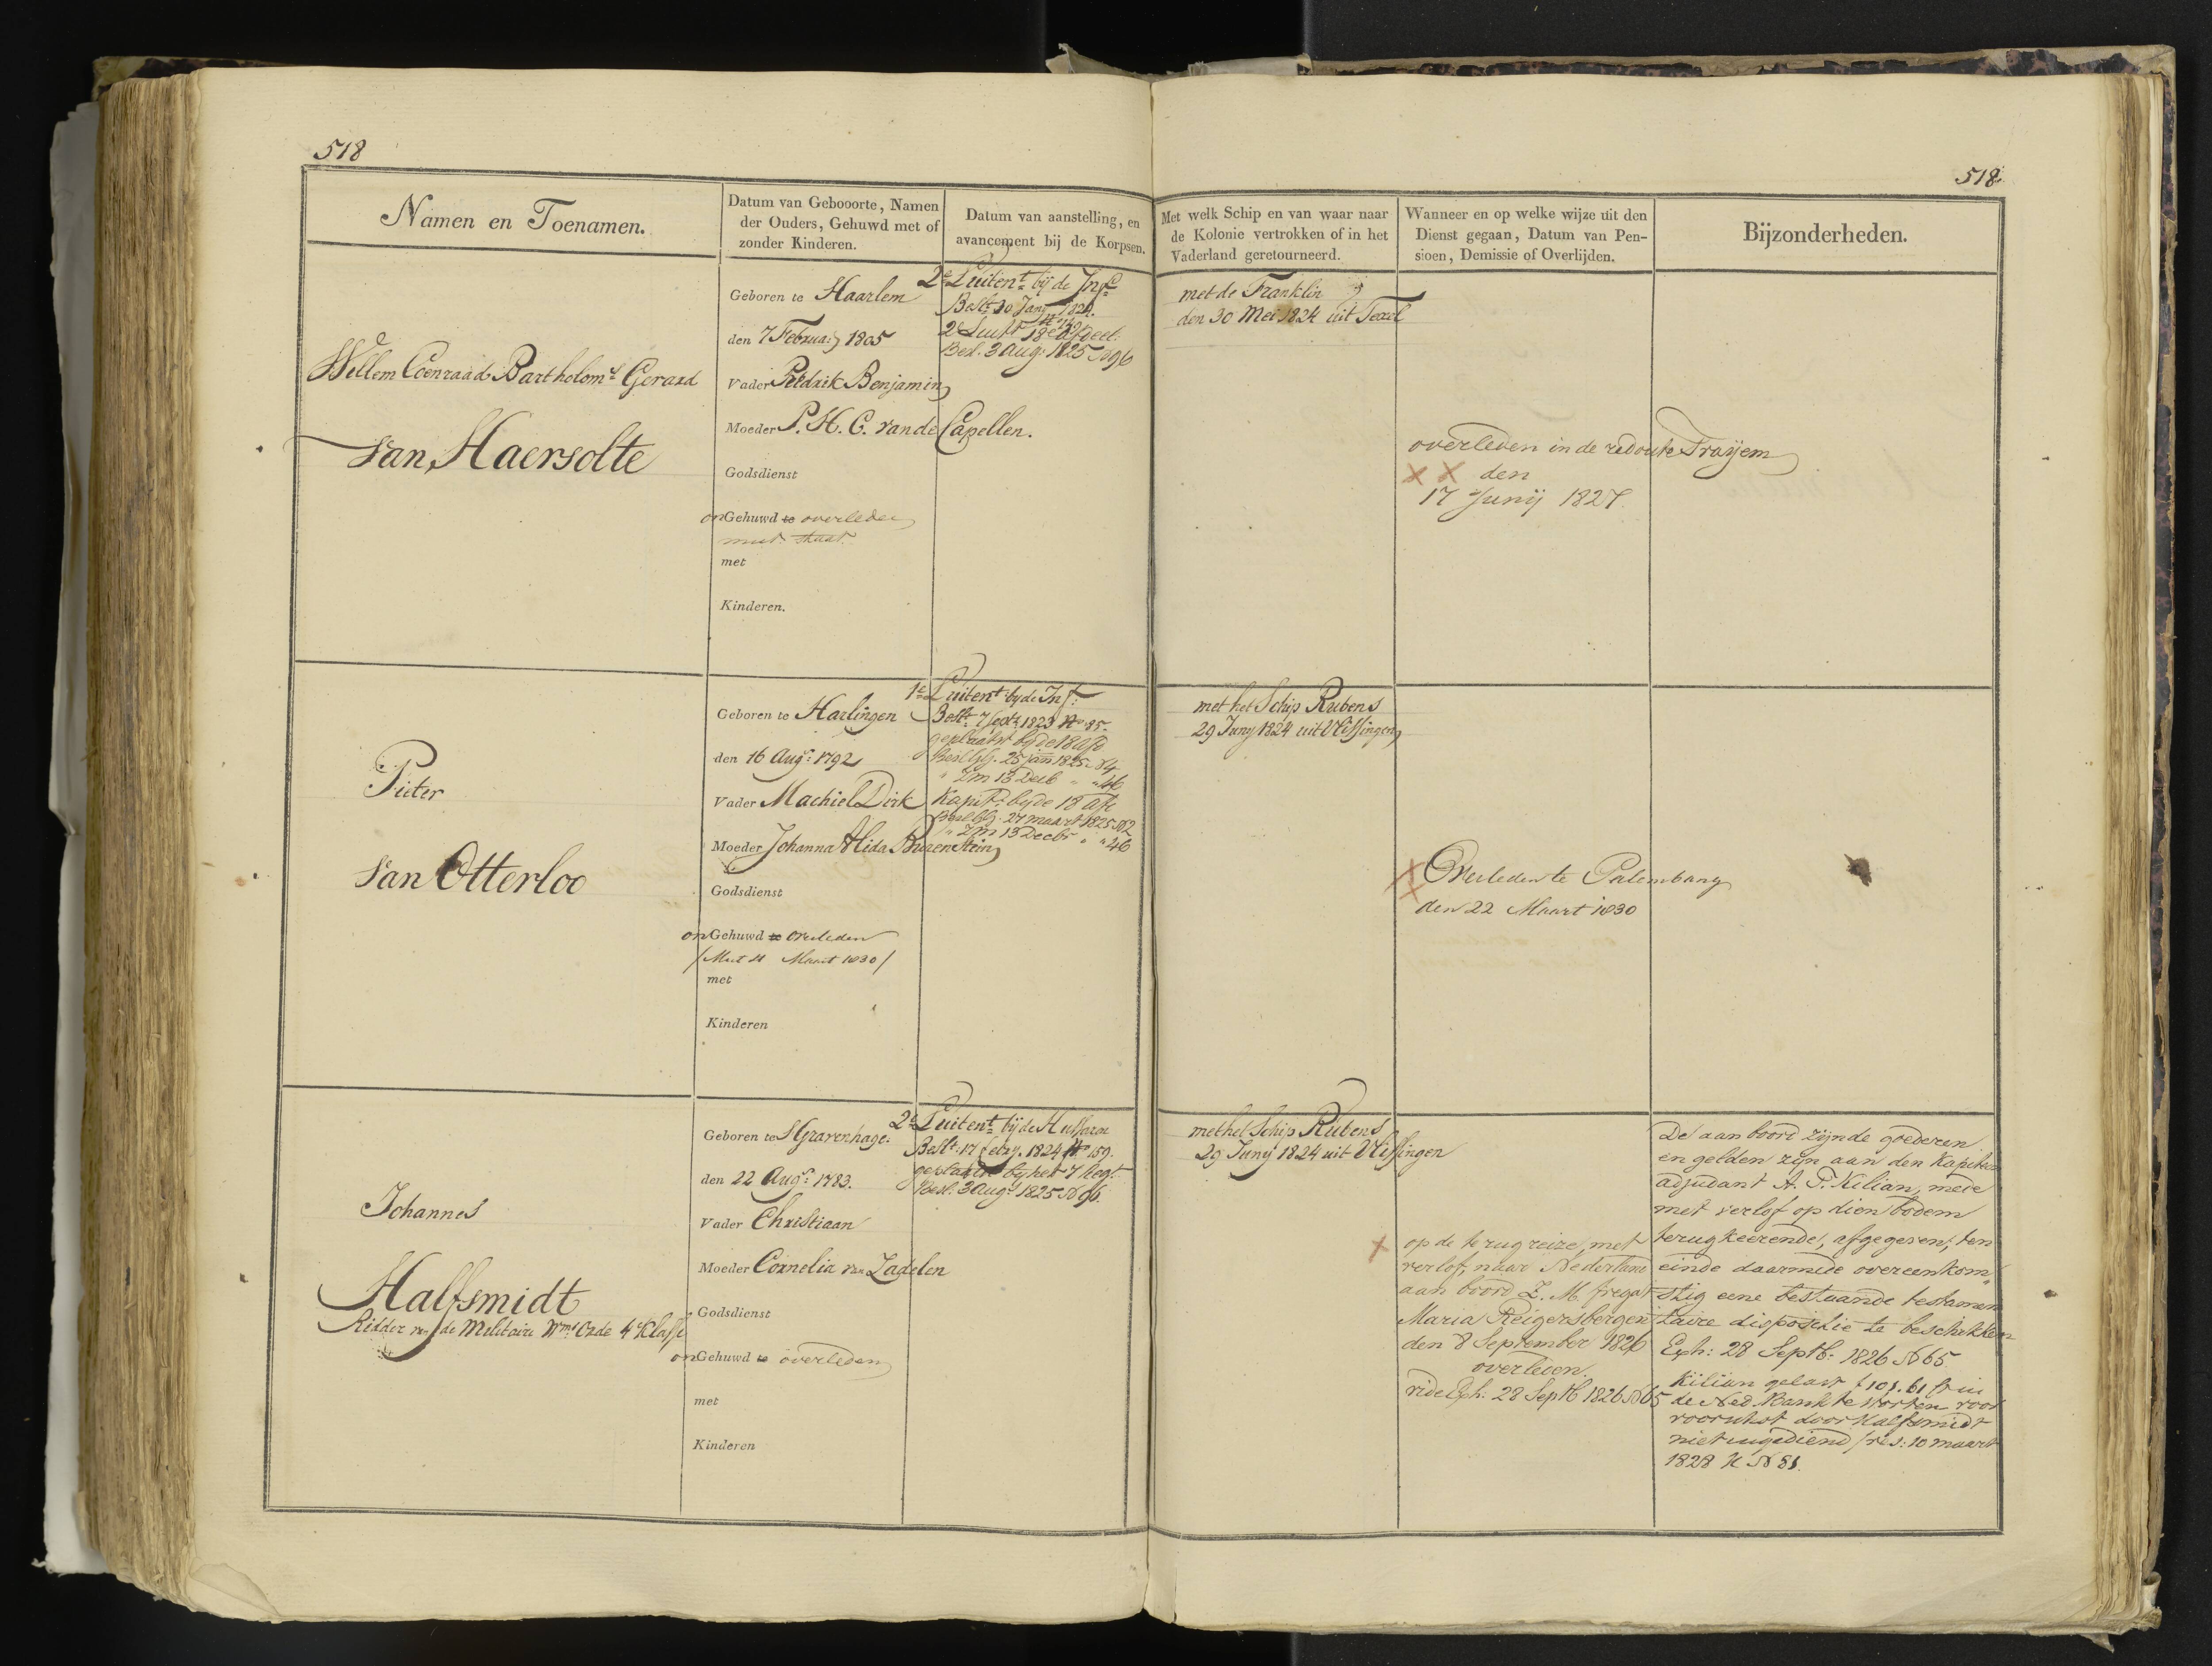 518
518
Namen en Toenamen.
Datum van Gebooorte, Namen
der Ouders, Gehuwd met of
zonder Kinderen.
Datum van aanstelling, en
avancement bij de Korpsen.
Met welk Schip en van waar naar
de Kolonie vertrokken of in het
Vaderland geretourneerd.
Wanneer en op welke wijze uit den
Dienst gegaan, Datum van Pen-
sioen, Demissie of Overlijden.
Bijzonderheden.
Willem Coenraad Bartholoms Gerard
van Haersolte
Geboren te Haarlem
den 7 Februarij 1805
Vader Fredrik Benjamin
Moeder P. H. C. van de Capellen.
Godsdienst
onGehuwd te overleden
met
Kinderen.
2e Luitent bij de Inf
Beslt 30 Jany 1824.
2e Luit 18e Afdeel.
Besl. 3 Aug: 1825 No 96
met de Franklin
den 30 Mei 1824 uit Texel
overleden in de redoute Trayem
den
17 Junij 1827
Pieter
van Otterloo
Geboren te Harlingen
den 16 Augs: 1792
Vader Machiel Dirk
Moeder Johanna Alida Burenstein
Godsdienst
onGehuwd te overleden
/ Maart 1830 /
met
Kinderen
1e Luitent bij de Inf:
Beslt 7 Septr 1823 No 85.
geplaatst bij de 18 Afd
25 jan 1825 N4
13 Decb " " 46
Kapitn bij de 18 Afd
27 maart 1825 N2
13 Decbr " " 46
met het Schip Rubens
29 Juny 1824 uit Vlissingen
Overleden te Palembang
den 22 Maart 1830
Johannes
Halfsmidt
Ridder van de Militaire Wms Orde 4e Klasse
Geboren te s'Gravenhage.
den 22 Augs: 1783.
Vader Christiaan
Moeder Cornelia van Zadelen
Godsdienst
onGehuwd te overleden
met
Kinderen
2e Luitent bij de Hussaren
Beslt: 17 febry. 1824 No 159.
geplaatst bij het 7 Regt.
Besl. 3 Augs 1825 No 96.
met het Schip Rubens
29 Junij 1824 uit Vlissingen
op de terugreize, met
verlof, naar Nederland
aan boord Z. M. fregat
Maria Reigersbergen
den 8 September 1826
overleden.
vide Exh: 28 Septb 1826 No 65
De aan boord zijnde goederen
en gelden zijn aan den Kapitein
adjudant A. P. Kilian, mede
met verlof op dien bodem
terugkeerende, afgegeven, ten
einde daarmede overeenkom„
stig eene bestaande testamen
taire dispositie te beschikken
Exh: 28 Septb: 1826 No 65
Kilian gelast f 101.61 in
de Ned. Bank te storten voor
voorschot door Halfsmidt
niet ingediend / res: 10 maart
1828 N 81.